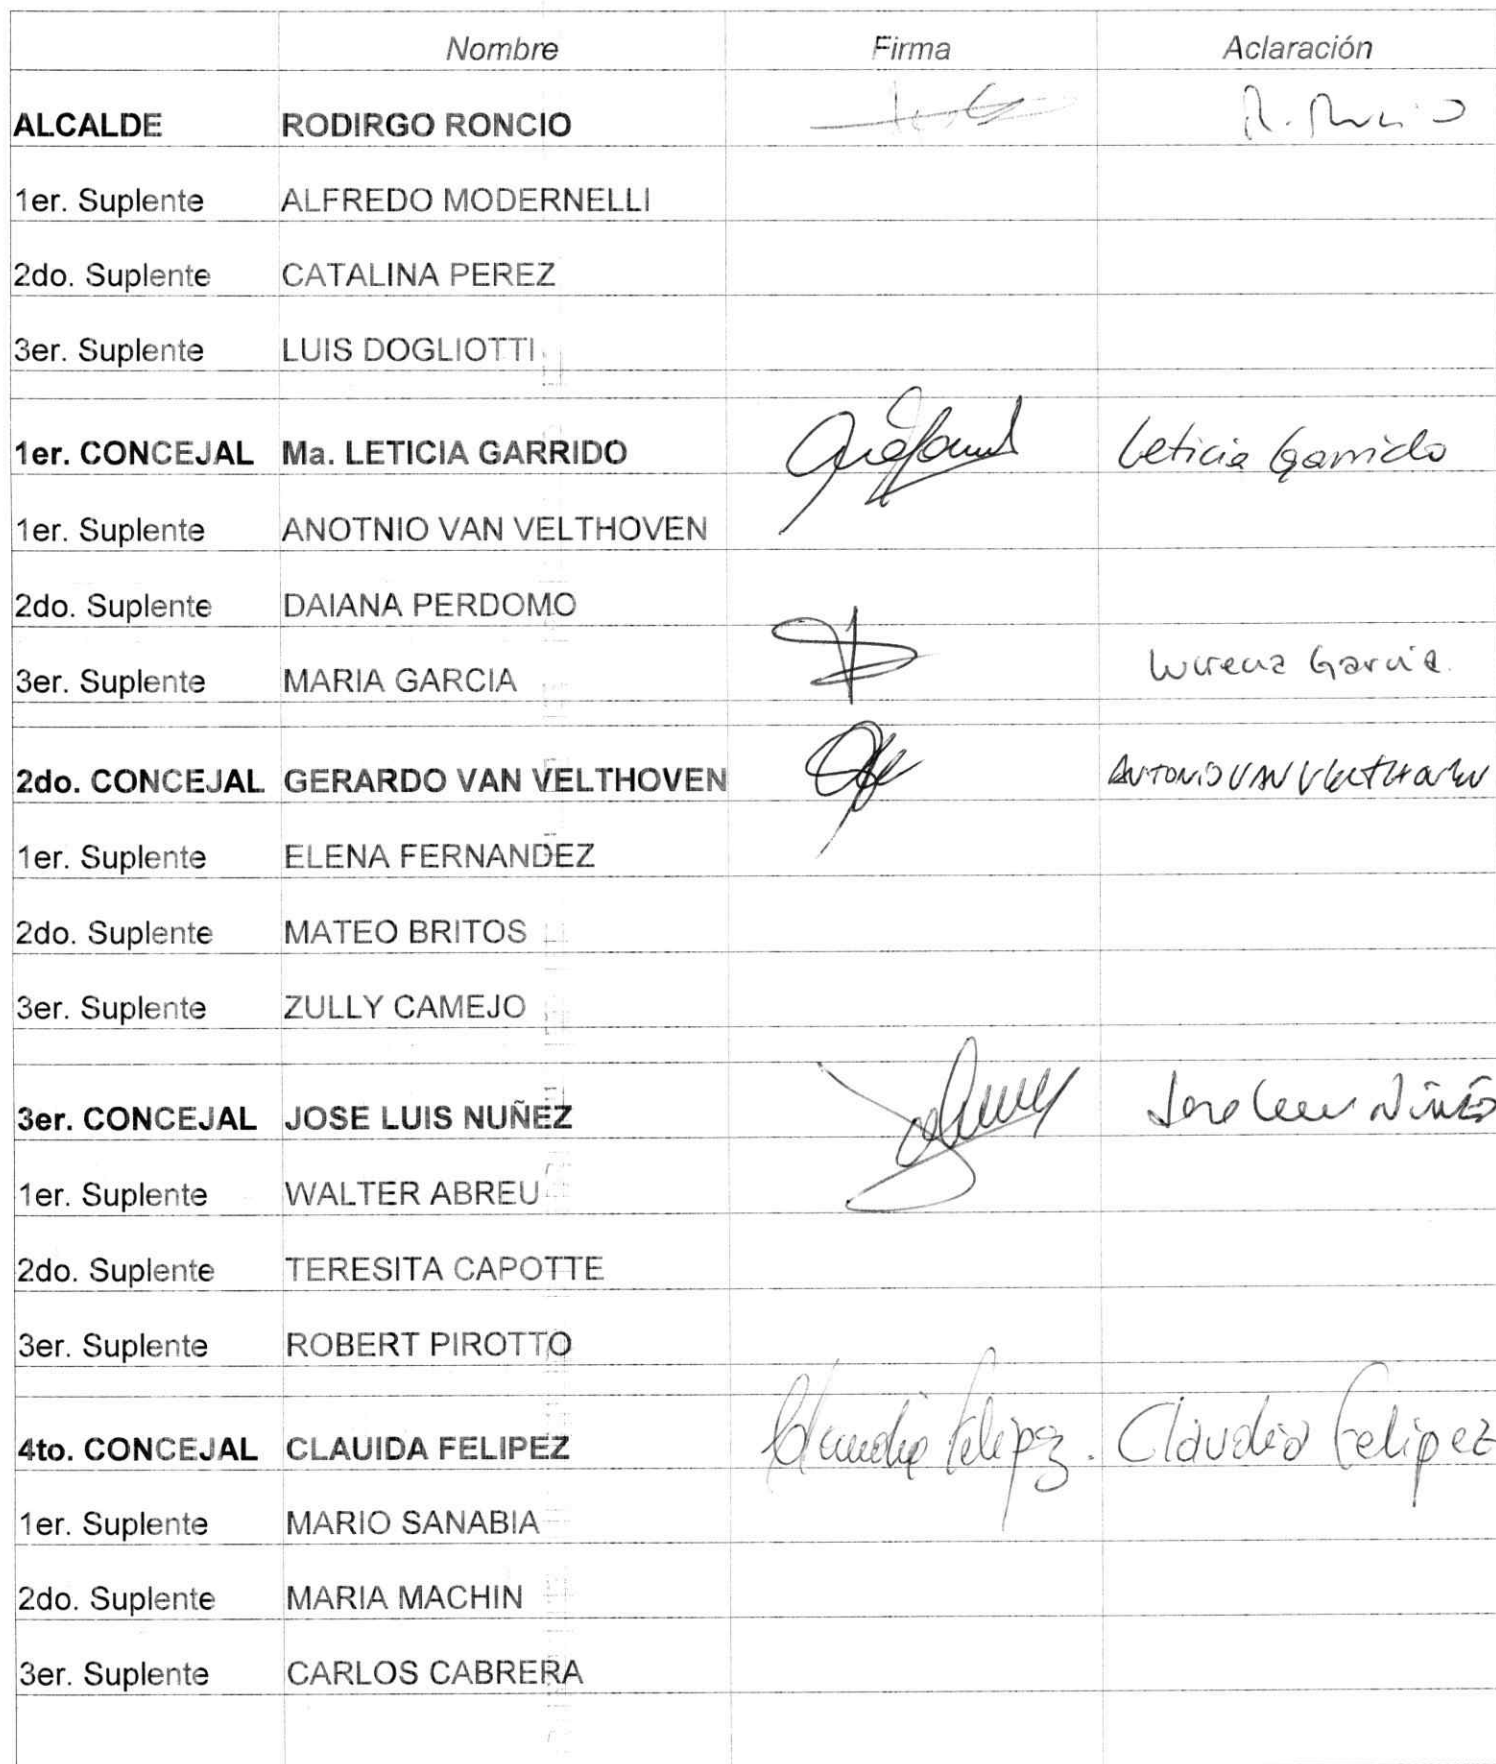 Nombre Firma Aclaración
ALCALDE RODIRGO RONCIO
1er. Suplente ALFREDO MODERNELLI
2do. Suplente CATALINA PEREZ
3er. Suplente LUIS DOGLIOTTI
1er. CONCEJAL Ma. LETICIA GARRIDO Leticia Garrido
1er. Suplente ANOTNIO VAN VELTHOVEN
2do. Suplente DAIANA PERDOMO
3er. Suplente MARIA GARCIA Garcia
2do. CONCEJAL GERARDO VAN VELTHOVEN ANTONIO VAN VELTHOVEN
1er. Suplente ELENA FERNANDEZ
2do. Suplente MATEO BRITOS
3er. Suplente ZULLY CAMEJO
3er. CONCEJAL JOSE LUIS NUÑEZ Jose Luis Núñez
1er. Suplente WALTER ABREU
2do. Suplente TERESITA CAPOTTE
3er. Suplente ROBERT PIROTTO
4to. CONCEJAL CLAUIDA FELIPEZ Claudia Felipez. Claudia Felipez
1er. Suplente MARIO SANABIA
2do. Suplente MARIA MACHIN
3er. Suplente CARLOS CABRERA